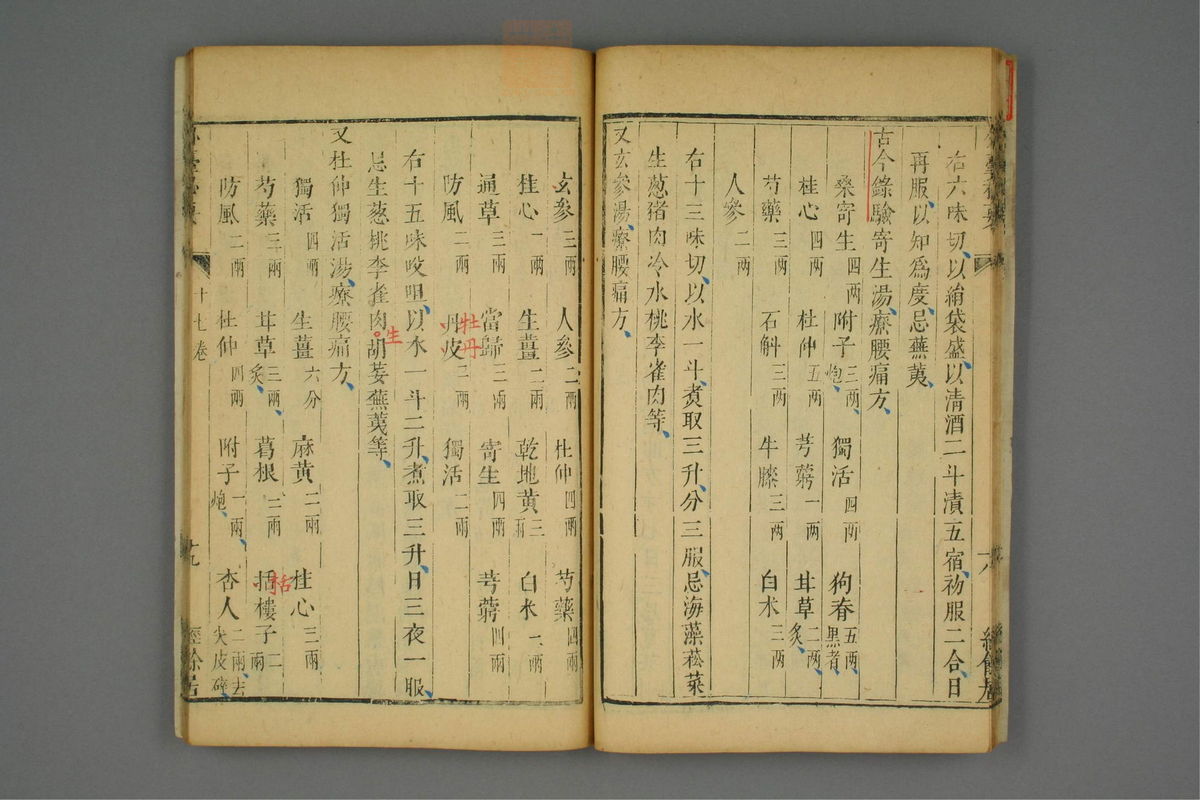 右六味切以絹袋盛以清酒二斗漬五宿初服二合日
再服以知為度忌蕪荑
古今錄驗寄生湯療腰痛方
桑寄生四兩 附子三兩炮 獨活四兩 狗脊五兩黑者
桂心四兩 杜仲五兩 芎藭一兩 甘草二兩炙
芍藥三兩 石斛三兩 牛膝三兩 白朮三兩
人參二兩
右十三味切以水一斗煑取三升分三服忌海藻菘菜
生葱猪肉冷水桃李雀肉等
又玄參湯療腰痛方
玄參三兩 人參二兩 杜仲四兩 芍藥四兩
桂心一兩 生薑二兩 乾地黃三兩 白朮一兩
通草三兩 當歸三兩 寄生四兩 芎藭四兩
防風二兩 牡丹 丹皮二兩 獨活二兩
右十五味㕮咀以水一斗二升煮取三升日三夜一服
忌生葱桃李雀肉生胡荽蕪荑等
又杜仲獨活湯療腰痛方
獨活四兩 生薑六分 麻黃二兩 桂心三兩
芍藥三兩 甘草三兩炙 葛根三兩 栝 括樓子二兩
防風二兩 杜仲四兩 附子一兩炮 杏人二兩去尖皮碎
十七卷
十九 經餘居